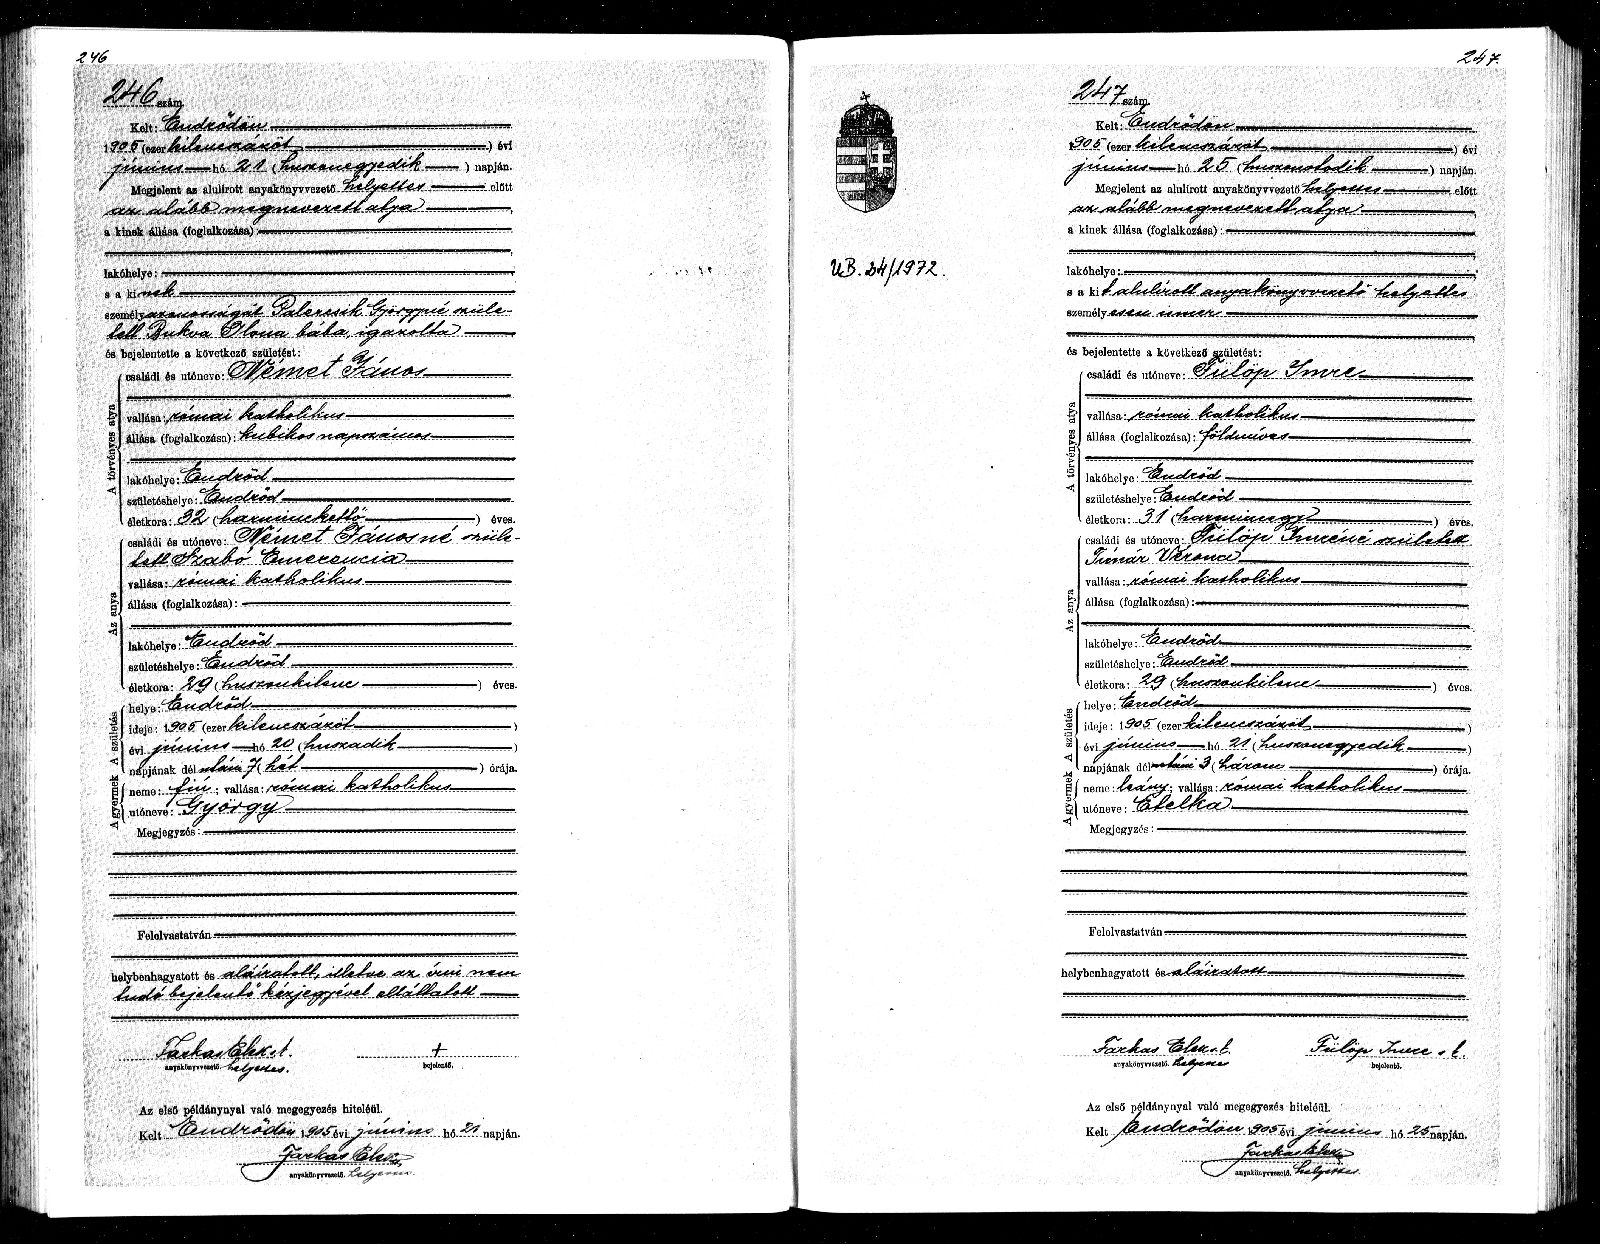 246
246 szám.
Kelt: Endrődön
1905 (ezer kilencszázöt) évi
június hó 21 (huszonegyedik) napján.
Megjelent az alulírott anyakönyvvezető helyettes előtt
az alább megnevezett atya,
a kinek állása (foglalkozása):
lakóhelye:
s a kinek
személyazonosságát Palercsik Györgyné szüle-
tett Bukva Ilona bába igazolta
és bejelentette a következő születést:
A törvényes atya
családi és utóneve: Német János
vallása: római katholikus
állása (foglalkozása): kubikos napszámos
lakóhelye: Endrőd
születéshelye: Endrőd
életkora: 32 (harminckettő) éves.
Az anya
családi és utóneve: Német Jánosné szüle-
tett Szabó Emerencia
vallása: római katholikus
állása (foglalkozása):
lakóhelye: Endrőd
születéshelye: Endrőd
életkora: 29 (huszonkilenc) éves.
A születés
helye: Endrőd
ideje: 1905 (ezer kilencszázöt)
évi június hó 20 (huszadik)
napjának dél után 7 (hét) órája.
A gyermek
neme: fiú; vallása: római katholikus
utóneve: György
Megjegyzés:
Felolvastatván
helybenhagyatott és aláíratott, illetve az írni nem
tudó bejelentő kézjegyével elláttatott
Farkas Elek s.t. +
anyakönyvvezető. helyettes. bejelentő.
Az első példánynyal való megegyezés hiteléül.
Kelt Endrődön 1905 évi június hó 21 napján.
Farkas Elek
anyakönyvvezető. helyettes
247.
247 szám.
Kelt: Endrődön
1905 (ezer kilencszázöt) évi
június hó 25 (huszonötödik) napján.
Megjelent az alulírott anyakönyvvezető helyettes előtt
az alább megnevezett atya,
a kinek állása (foglalkozása):
UB. 24/1972.
lakóhelye:
s a kit alulírott anyakönyvvezető helyettes
személyesen ismer
és bejelentette a következő születést:
A törvényes atya
családi és utóneve: Fülöp Imre
vallása: római katholikus
állása (foglalkozása): földmíves
lakóhelye: Endrőd
születéshelye: Endrőd
életkora: 31 (harmincegy) éves.
Az anya
családi és utóneve: Fülöp Imréné született
Tímár Verona
vallása: római katholikus
állása (foglalkozása):
lakóhelye: Endrőd
születéshelye: Endrőd
életkora: 29 (huszonkilenc) éves.
A születés
helye: Endrőd
ideje: 1905 (ezer kilencszázöt)
évi június hó 21 (huszonegyedik)
napjának dél után 3 (három) órája.
A gyermek
neme: leány; vallása: római katholikus
utóneve: Etelka
Megjegyzés:
Felolvastatván
helybenhagyatott és aláíratott
Farkas Elek s.t. Fülöp Imre s.t.
anyakönyvvezető. helyettes bejelentő.
Az első példánynyal való megegyezés hiteléül.
Kelt Endrődön 1905 évi június hó 25 napján.
Farkas Elek
anyakönyvvezető. helyettes